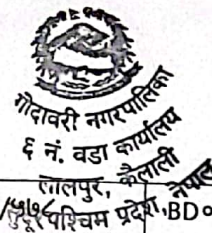 गोदावरी नगरपालिका
६ नं. वडा कार्यालय
लालपुर, कैलाली
सुदूरपश्चिम प्रदेश, नेपाल
BD०